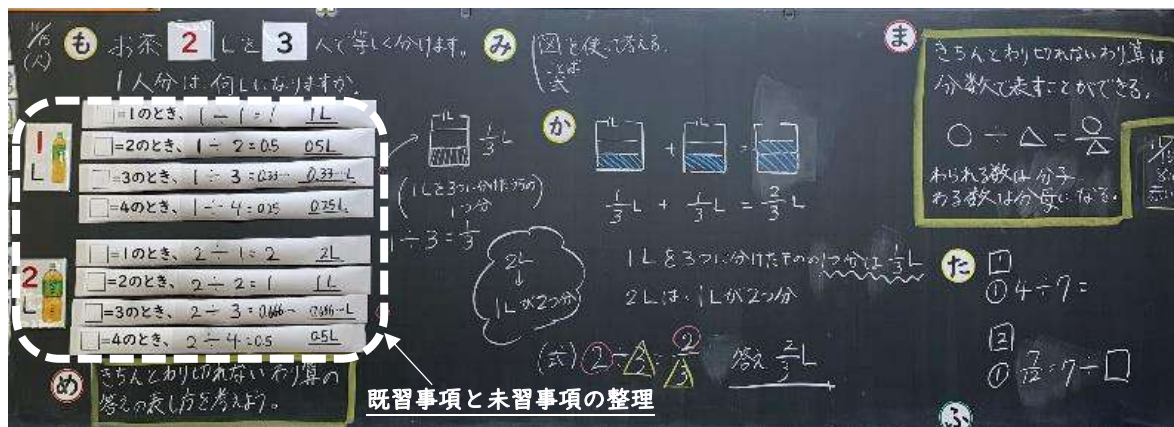 11/15
(火)
も お茶 2 Lを 3 人で等しく分けます。
1人分は、何Lになりますか。
1
L
□=1のとき、1÷1=1 1L
□=2のとき、1÷2=0.5 0.5L
□=3のとき、1÷3=0.33… 0.33…L
□=4のとき、1÷4=0.25 0.25L
2
L
□=1のとき、2÷1=2 2L
□=2のとき、2÷2=1 1L
□=3のとき、2÷3=0.666… 0.666…L
□=4のとき、2÷4=0.5 0.5L
め きちんとわり切れないわり算の
答えの表し方を考えよう。
既習事項と未習事項の整理
み 図を使って考える。
ことば
式
1L
1/3 L
(1Lを3つに分けたうちの
1つ分
1÷3=1/3
2L
↓
1Lが2つ分
か
1L + 1L = 1L
1/3 L + 1/3 L = 2/3 L
1Lを3つに分けたものの1つ分は1/3 L
2Lは、1Lが2つ分
(式) 2÷3=2/3 答え 2/3 L
ま きちんとわり切れないわり算は
分数で表すことができる。
○÷△=○/△
わられる数は分子
わる数は分母になる。
た 1
① 4÷7=
2
① 7/12=7÷□
ふ